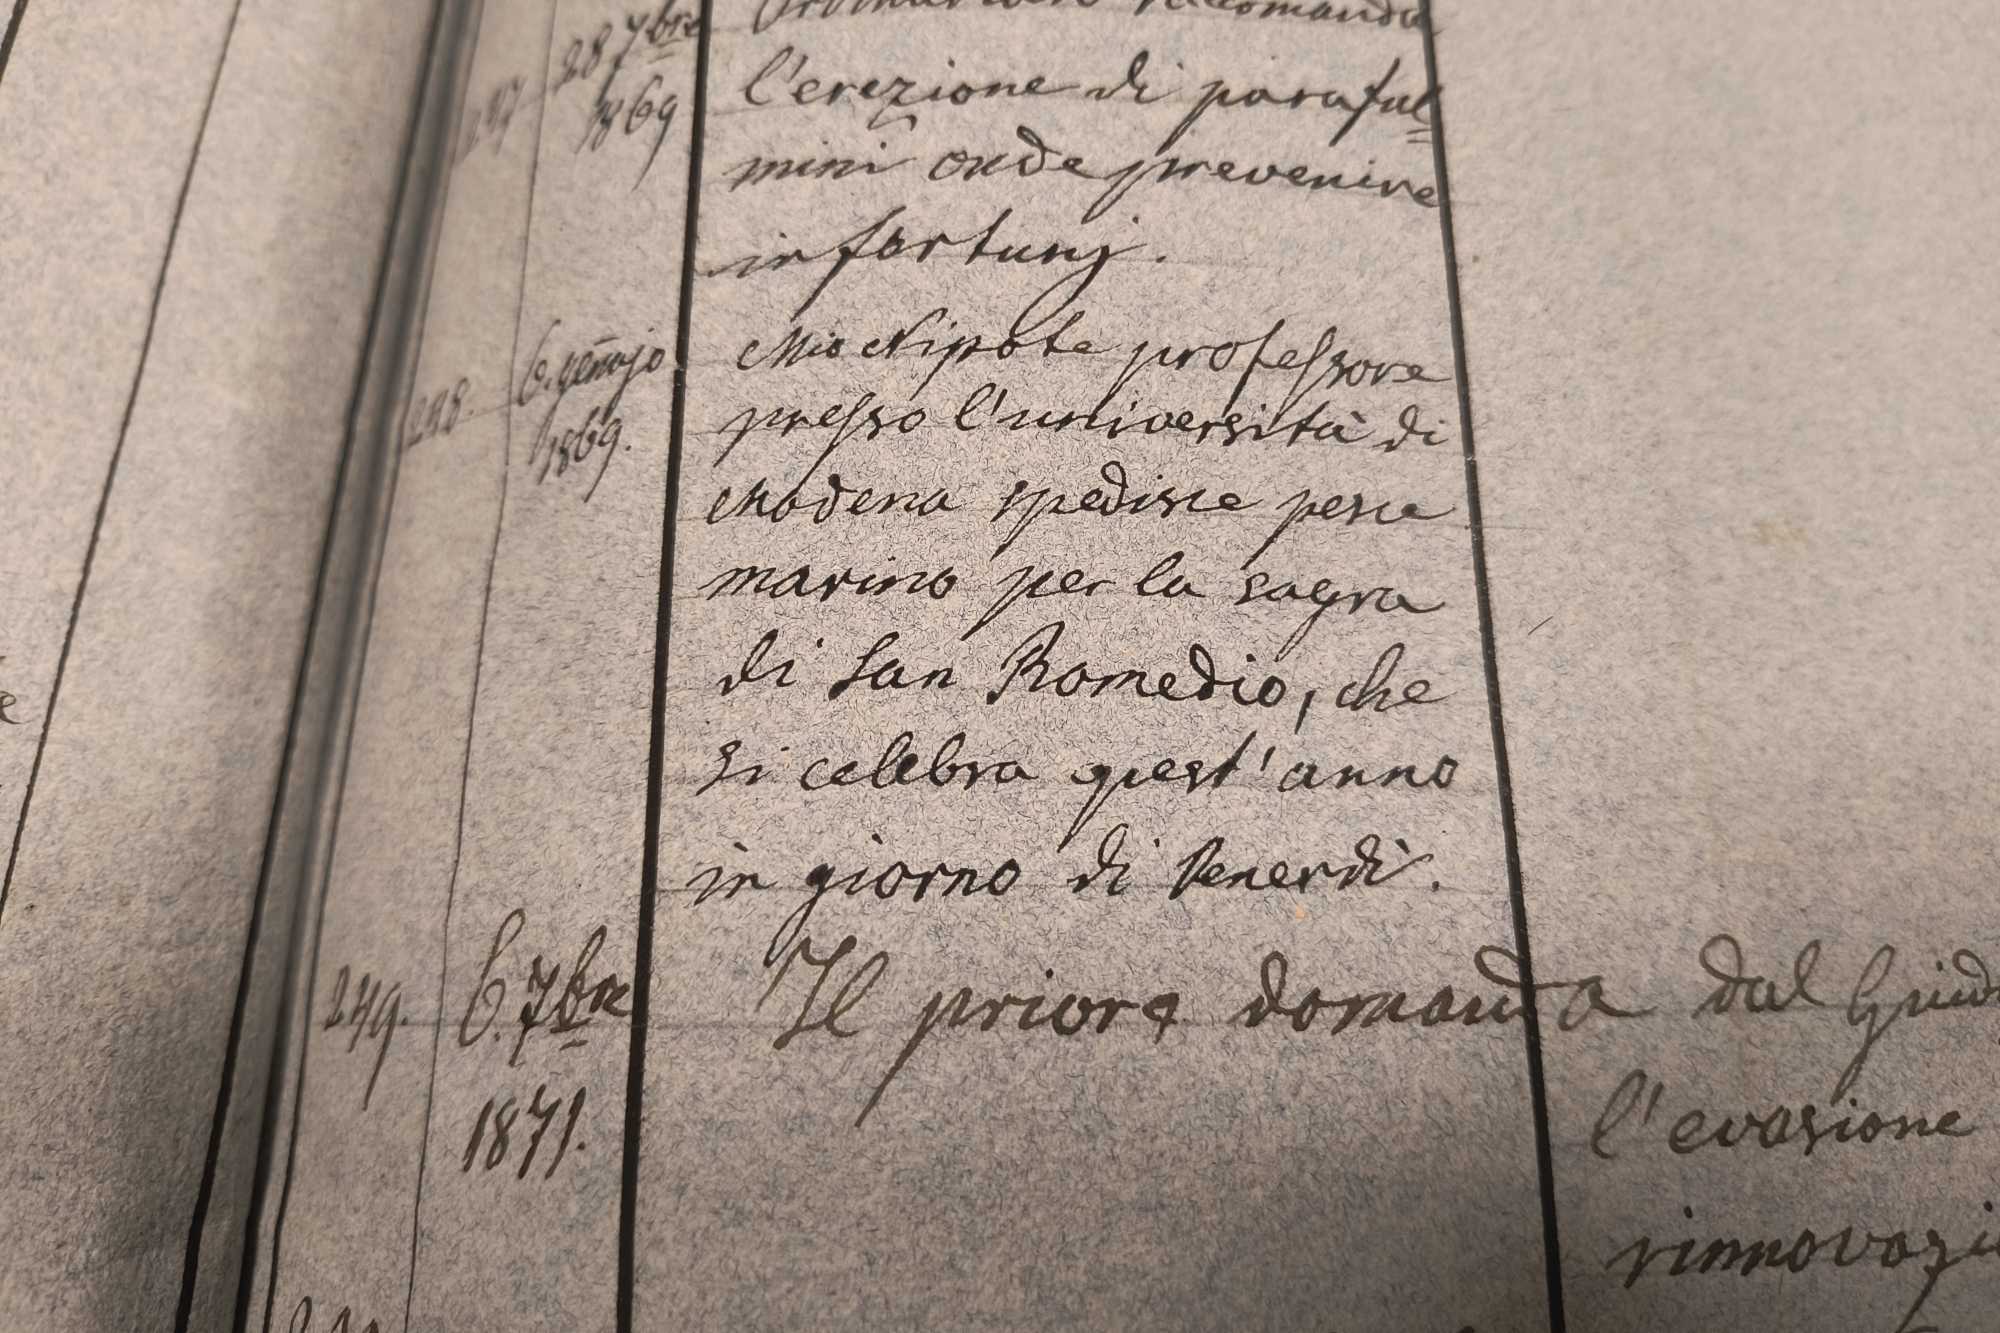 28 7bre
raccomanda
1869
l'erezione di paraful=
mini onde prevenire
infortunj.
248. 6. gennajo
1869.
Mio Nipote professore
presso l'università di
Modena spedisce pesce
marino per la sagra
di San Romedio, che
si celebra quest'anno
in giorno di Venerdì.
249. 6. 7bre Il priore domanda dal
1871.
l'evasione